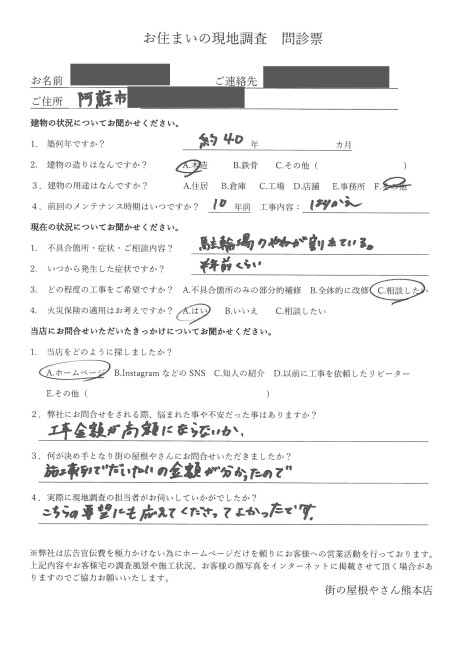 お住まいの現地調査　問診票
お名前　ご連絡先
ご住所　阿蘇市
建物の状況についてお聞かせください。
1.　築何年ですか？　約40年　カ月
2.　建物の造りはなんですか？　A.木造　B.鉄骨　C.その他（　）
3．建物の用途はなんですか？　A.住居　B.倉庫　C.工場　D.店舗　E.事務所　F.その他
4．前回のメンテナンス時期はいつですか？　10年前　工事内容：
現在の状況についてお聞かせください。
1.　不具合箇所・症状・ご相談内容？　駐輪場のやねが割れている。
2.　いつから発生した症状ですか？　半年前くらい
3.　どの程度の工事をご希望ですか？　A.不具合箇所のみの部分的補修　B.全体的に改修　C.相談したい
4.　火災保険の適用はお考えですか？　A.はい　B.いいえ　C.相談したい
当店にお問合せいただいたきっかけについてお聞かせください。
1.　当店をどのように探しましたか？
A.ホームページ　B.Instagram などの SNS　C.知人の紹介　D.以前に工事を依頼したリピーター
E.その他（　）
2．弊社にお問合せをされる際、悩まれた事や不安だった事はありますか？
工事金額が高額にならないか、
3．何が決め手となり街の屋根やさんにお問合せいただきましたか？
施工事例でだいたいの金額が分かったので
4．実際に現地調査の担当者がお伺いしていかがでしたか？
こちらの要望にも応えてくださってよかったです。
※弊社は広告宣伝費を極力かけない為にホームページだけを頼りにお客様への営業活動を行っております。
上記内容やお客様宅の調査風景や施工状況、お客様の顔写真をインターネットに掲載させて頂く場合があ
りますのでご協力お願いいたします。
街の屋根やさん熊本店